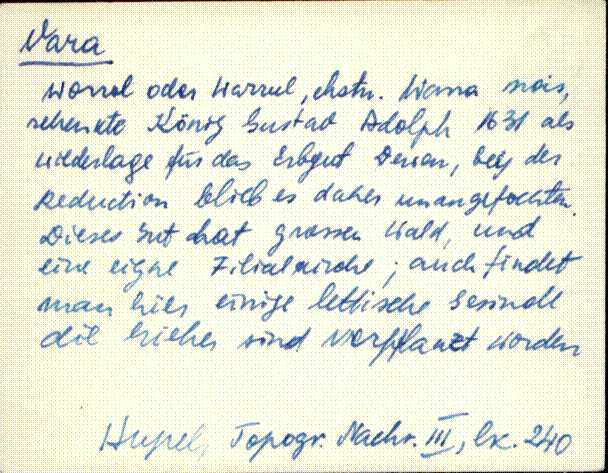 Vara
Worrol oder Warrul, ehstn. Warra mois,
schenkte König Gustav Adolph 1631 als
niederlage für das Erbgut Dewen, bey der
Reduction blieb es daher unangefochten.
Dieses Gut hat grossen Wald, und
eine eigne Filialkirche; auch findet
man hier einige lettische Gesinde
die hieher sind verpflanzt worden
Hupel, Topogr. Nachr. III, lk. 240